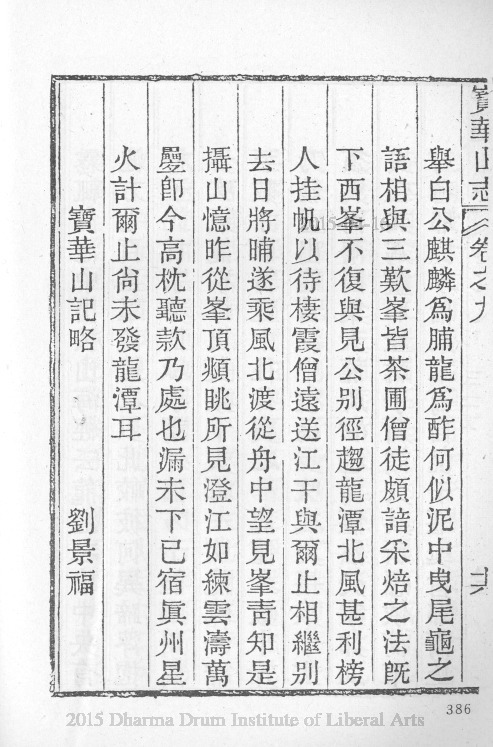 寶華山志 卷之九 十六
舉白公麒麟爲脯龍爲酢何似泥中曳尾龜之
語相與三歎峯皆茶圃僧徒頗諳采焙之法旣
下西峯不復與見公別徑趨龍潭北風甚利榜
人挂帆以待棲霞僧遠送江干與爾止相繼別
去日將晡遂乘風北渡從舟中望見峯靑知是
攝山憶昨從峯頂頫眺所見澄江如練雲濤萬
疊卽今高枕聽款乃處也漏未下已宿眞州星
火計爾止尙未發龍潭耳
寶華山記略 劉景福
386
2015 Dharma Drum Institute of Liberal Arts